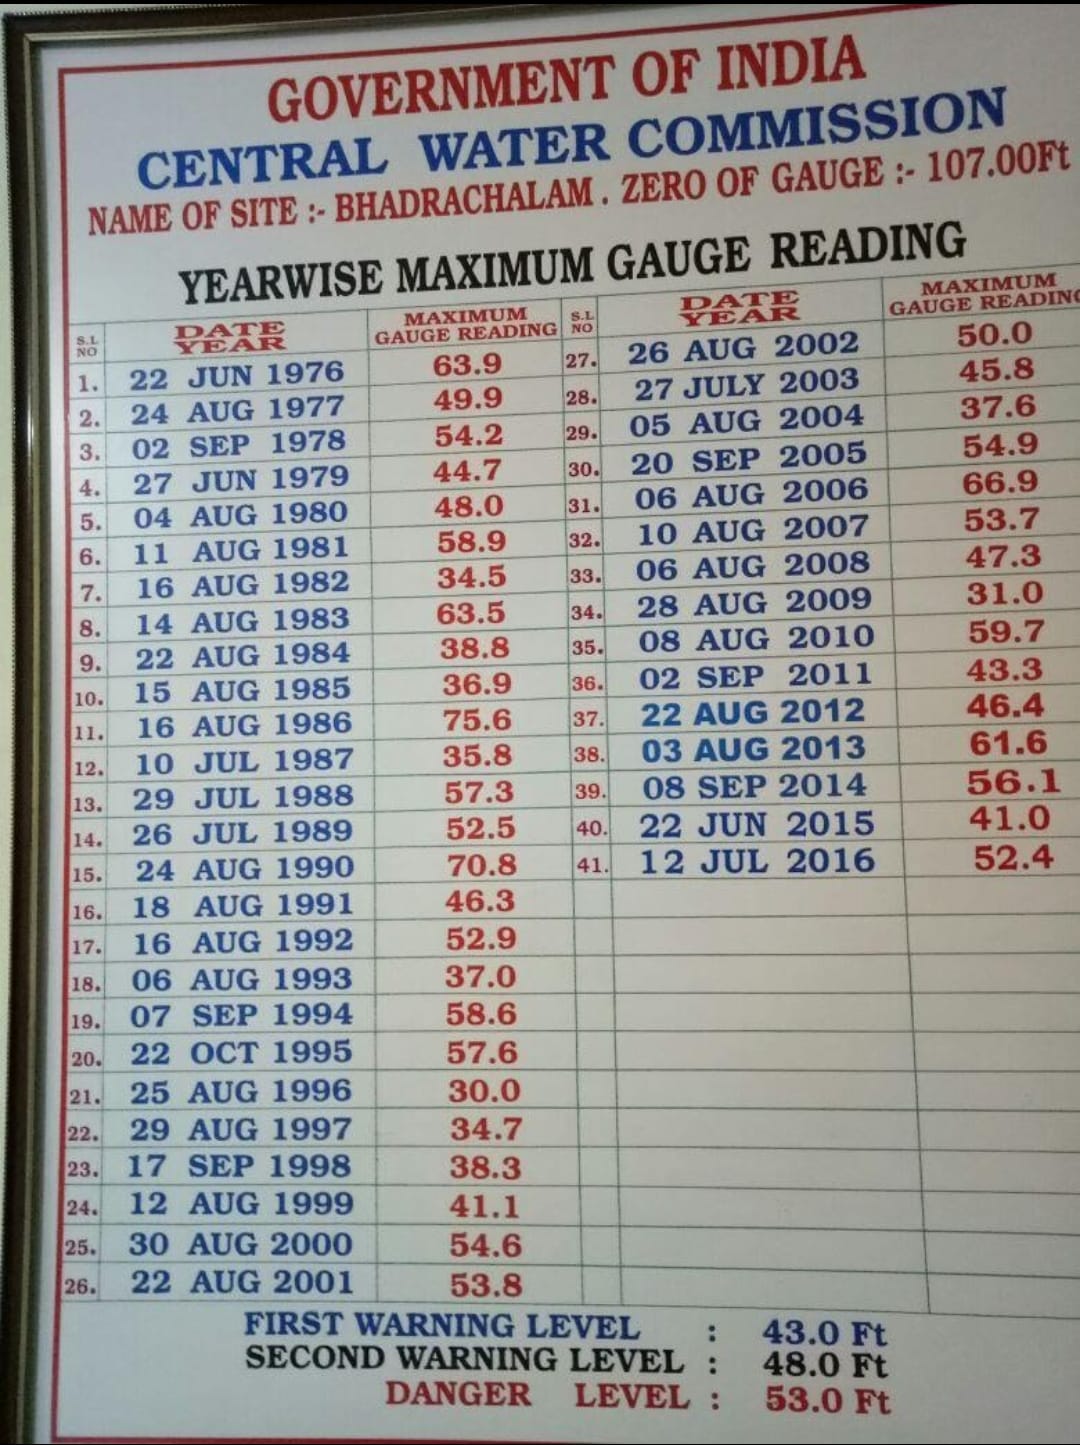 GOVERNMENT OF INDIA
CENTRAL WATER COMMISSION
NAME OF SITE :- BHADRACHALAM . ZERO OF GAUGE :- 107.00Ft
YEARWISE MAXIMUM GAUGE READING
S.L NO DATE YEAR MAXIMUM GAUGE READING
1. 22 JUN 1976 63.9
2. 24 AUG 1977 49.9
3. 02 SEP 1978 54.2
4. 27 JUN 1979 44.7
5. 04 AUG 1980 48.0
6. 11 AUG 1981 58.9
7. 16 AUG 1982 34.5
8. 14 AUG 1983 63.5
9. 22 AUG 1984 38.8
10. 15 AUG 1985 36.9
11. 16 AUG 1986 75.6
12. 10 JUL 1987 35.8
13. 29 JUL 1988 57.3
14. 26 JUL 1989 52.5
15. 24 AUG 1990 70.8
16. 18 AUG 1991 46.3
17. 16 AUG 1992 52.9
18. 06 AUG 1993 37.0
19. 07 SEP 1994 58.6
20. 22 OCT 1995 57.6
21. 25 AUG 1996 30.0
22. 29 AUG 1997 34.7
23. 17 SEP 1998 38.3
24. 12 AUG 1999 41.1
25. 30 AUG 2000 54.6
26. 22 AUG 2001 53.8
S.L NO DATE YEAR MAXIMUM GAUGE READING
27. 26 AUG 2002 50.0
28. 27 JULY 2003 45.8
29. 05 AUG 2004 37.6
30. 20 SEP 2005 54.9
31. 06 AUG 2006 66.9
32. 10 AUG 2007 53.7
33. 06 AUG 2008 47.3
34. 28 AUG 2009 31.0
35. 08 AUG 2010 59.7
36. 02 SEP 2011 43.3
37. 22 AUG 2012 46.4
38. 03 AUG 2013 61.6
39. 08 SEP 2014 56.1
40. 22 JUN 2015 41.0
41. 12 JUL 2016 52.4
FIRST WARNING LEVEL : 43.0 Ft
SECOND WARNING LEVEL : 48.0 Ft
DANGER LEVEL : 53.0 Ft